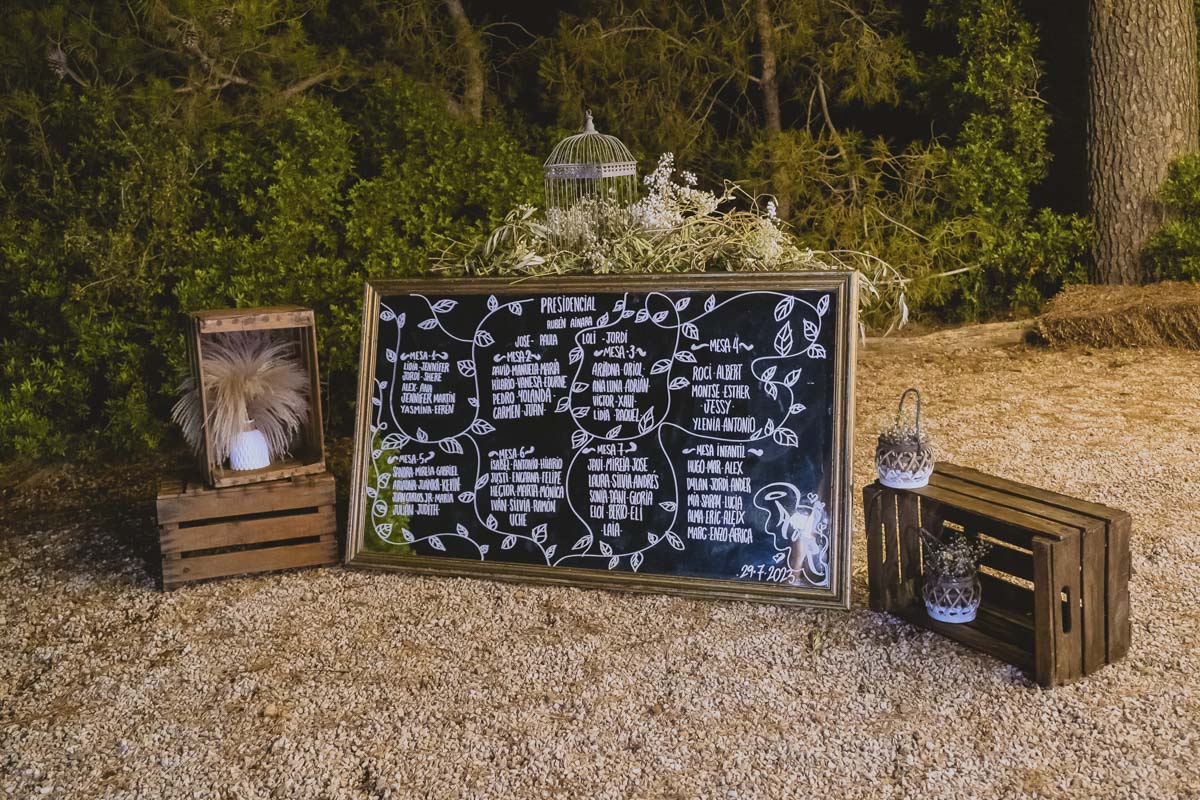 PRESIDENCIAL
RUBÉN AINARA
JOSE - PAULA LOLI - JORDI
MESA-1
LIDIA-JENNIFER
JORDI-SHERE
ALEX-ANA
JENNIFER MARTÍN
YASMINA-EFREN
MESA-2
DAVID-MANUELA-MARÍA
HILARIO-VANESA-EDURNE
PEDRO YOLANDA
CARMEN-JUAN
MESA-3
ARIADNA-ORIOL
ANA LUNA-ADRIÁN
VÍCTOR-XAVI
LIDIA-RAQUEL
MESA 4
ROCI-ALBERT
MONTSE-ESTHER
JESSY
YLENIA-ANTONIO
MESA-5
SANDRA-MIREIA-GABRIEL
ARIADNA JUANMA-KEVIN
JUAN CARLOS JR-MARÍA
JULIÁN JUDITH
MESA-6
ISABEL-ANTONIO-HILARIO
JUSTI-ENCARNA-FELIPE
HECTOR-MARTA-MÓNICA
IVÁN-SILVIA-RAMÓN
UCHE
MESA 7
JAVI-MIREIA-JOSE
LAURA-SILVIA-ANDRÉS
SONIA-DANI-GLORIA
ELOI-BERTO-ELI
LAIA
MESA INFANTIL
HUGO-MAR-ALEX
DYLAN JORDI ANDER
MIA SARAH-LUCÍA
ALMA-ERIC-ALEIX
MARC-ENZO-ÁFRICA
29-7-2023